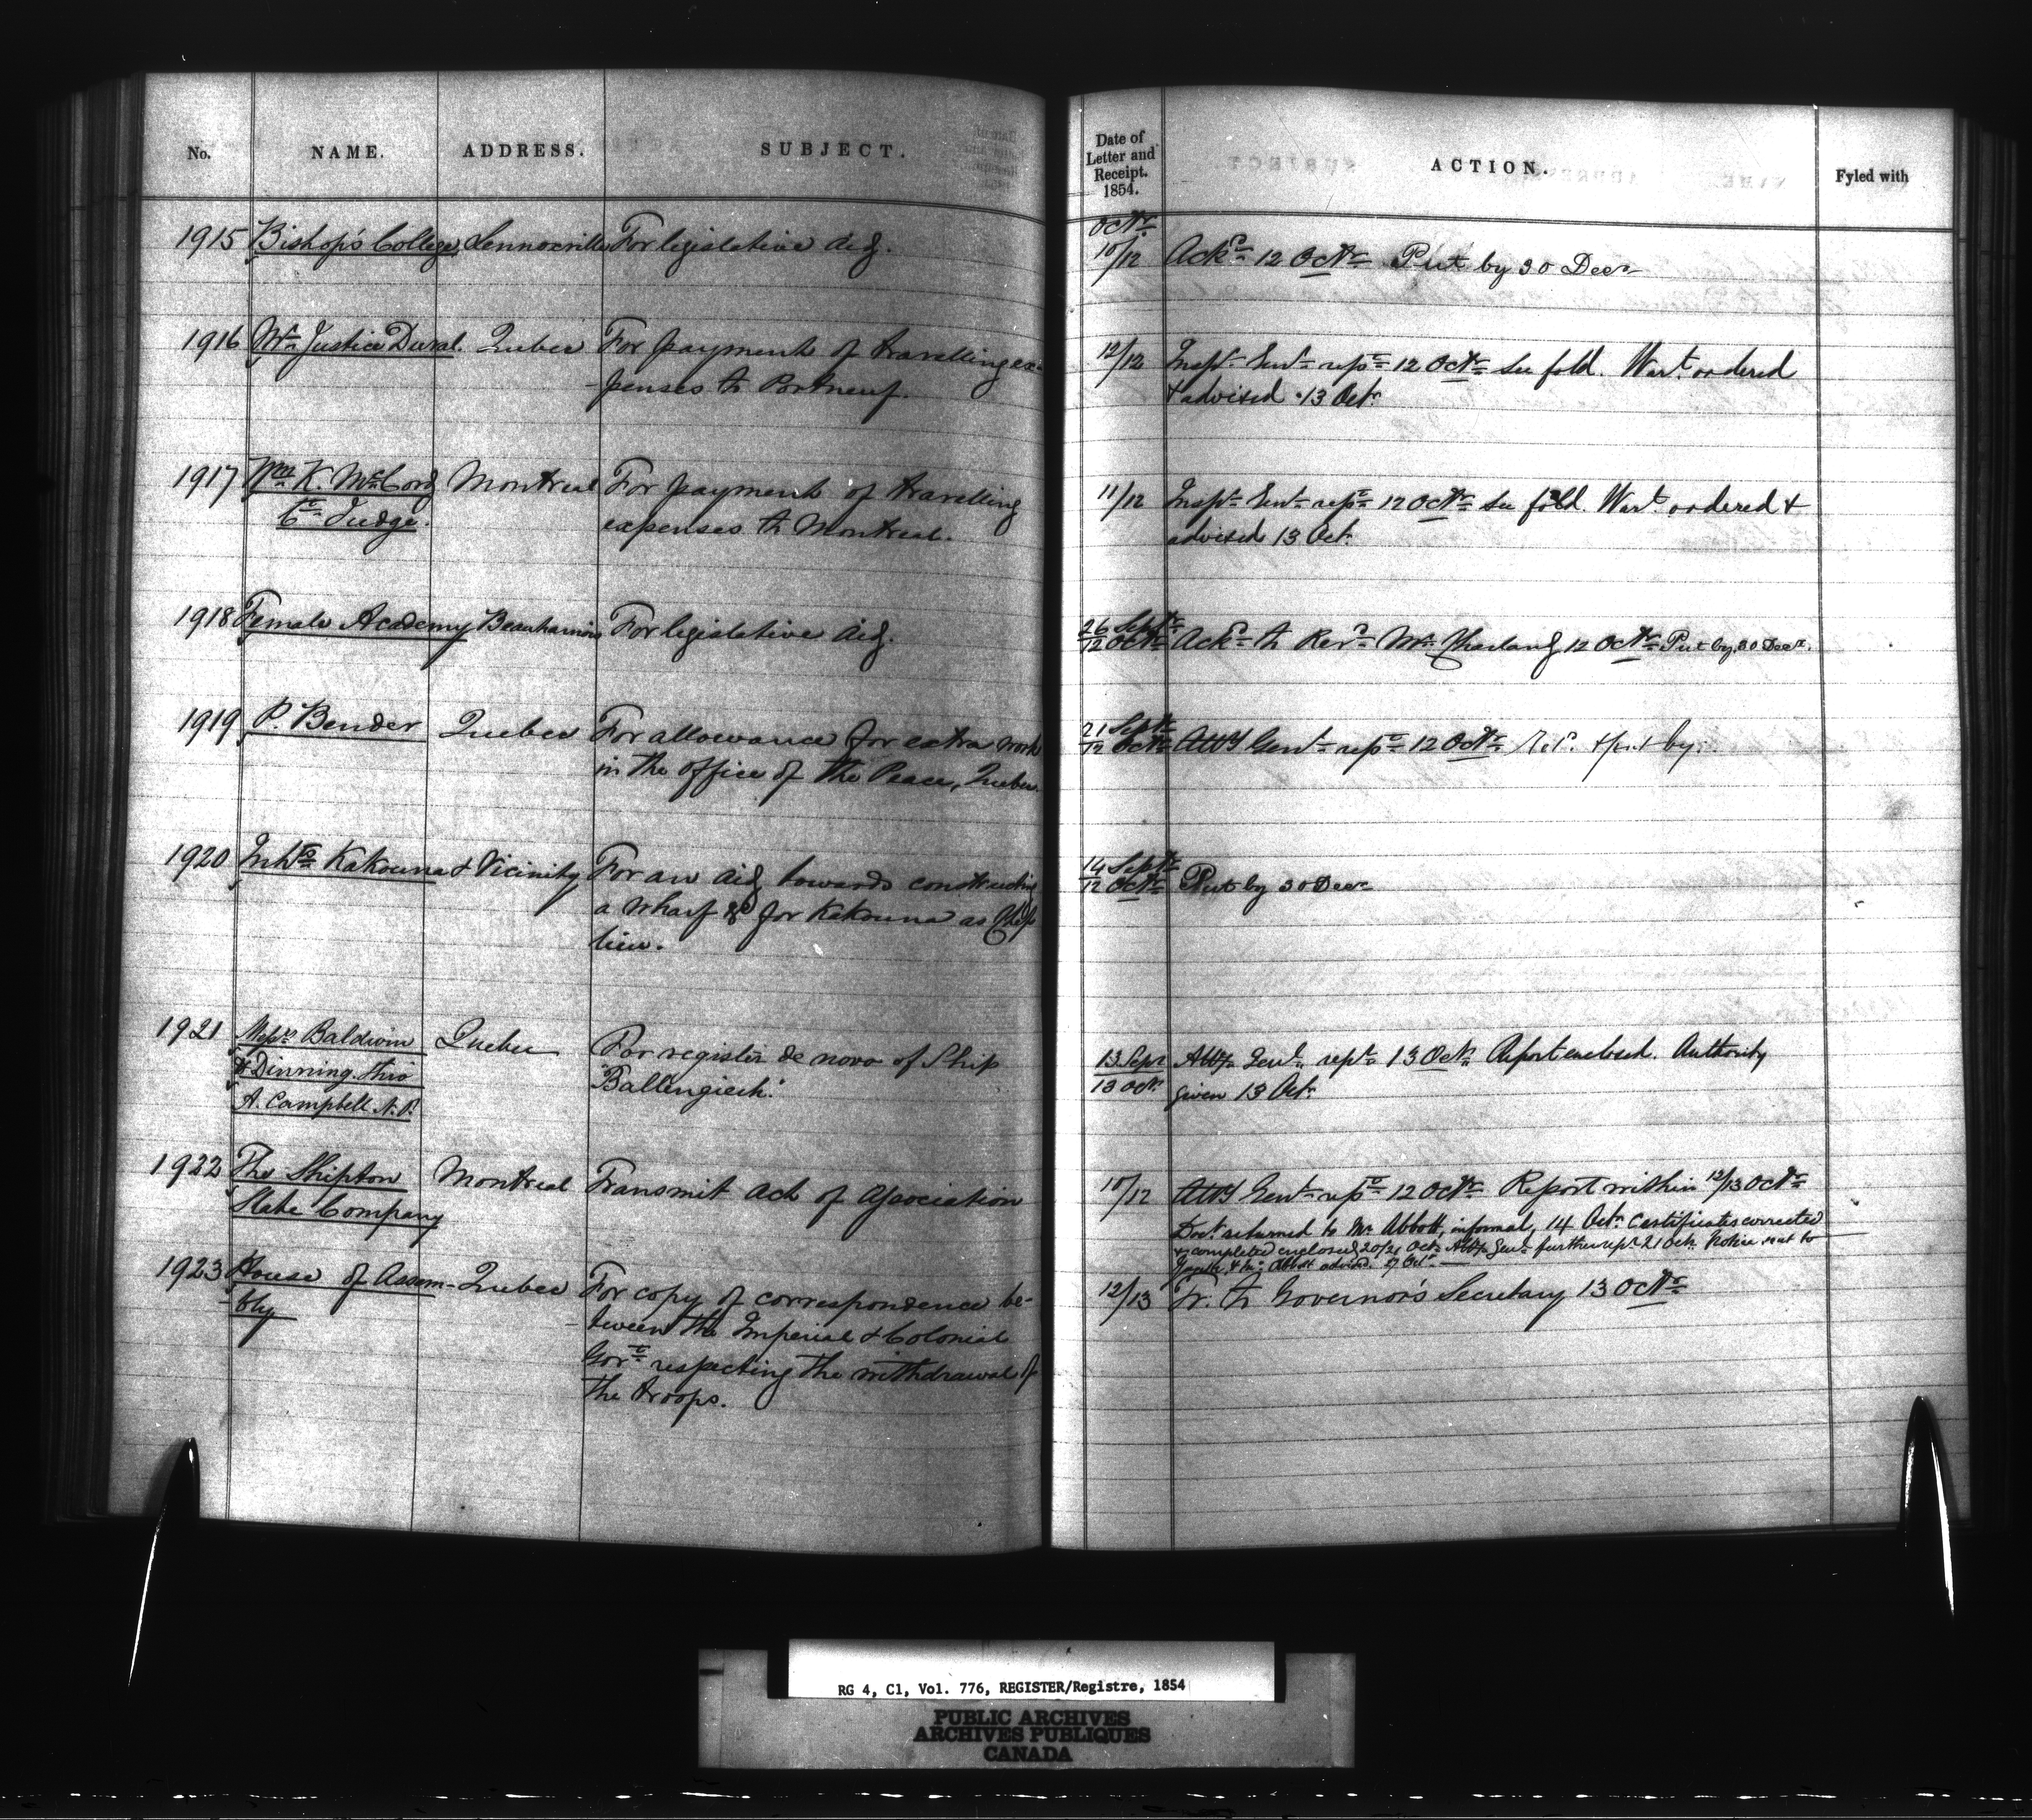 No. NAME. ADDRESS. SUBJECT.
1915 Bishop's College Lennoxville For legislative aid.
1916 Mr. Justice Duval. Quebec For payment of travelling ex-
penses to Portneuf.
1917 Wm. K. McCord Montreal For payment of travelling
Ct. Judge. expenses to Montreal.
1918 Female Academy Beauharnois For legislative aid.
1919 P. Bender Quebec For allowance for extra work
in the office of the Peace, Quebec.
1920 Inhts. Kakouna & Vicinity For an aid towards constructing
a wharf &c for Kakouna as Chef
lieu.
1921 Messrs Baldwin Quebec For register de novo of Ship
& Dinning thro "Ballengiech".
A. Campbell N.P.
1922 The Shipton Montreal Transmit Act of Association
Slate Company
1923 House of Assem- Quebec For copy of correspondence be-
bly tween the Imperial & Colonial
Govt. respecting the withdrawal of
the troops.
Date of
Letter and
Receipt.
1854. ACTION. Fyled with
Octr.
10/12 Ackd. 12 Octr. Put by 30 Decr.
12/12 Inspr. Genl. repd. 12 Octr. See fold. Wart. ordered
& advised 13 Octr.
11/12 Inspr. Genl. repd. 12 Octr. See fold. Wart. ordered &
advised 13 Oct.
26 Septr.
12 Octr. Ackd. to Revd. Mr. Charland 12 Octr. Put by 30 Decr.
21 Septr.
12 Octr. Atty Genl. repd. 12 Octr. & put by.
14 Septr.
12 Octr. Put by 30 Decr.
13 Sepr. Atty. Genl. repd. 13 Oct. Report enclosed. Authority
13 Oct. given 13 Oct.
10/12 Atty Genl. repd. 12 Octr. Report within 12/13 Octr.
Doct. returned to Mr. Abbott, informal, 14 Oct. Certificates corrected
& completed enclosed 20/21 Oct. Atty. Genl. further repd. 21 Oct. Notice sent to
Gazette & Mr. Abbott advised. 27 Oct.
12/13 Tr. to Governor's Secretary 13 Octr.
RG 4, C1, Vol. 776, REGISTER/Registre, 1854
PUBLIC ARCHIVES
ARCHIVES PUBLIQUES
CANADA